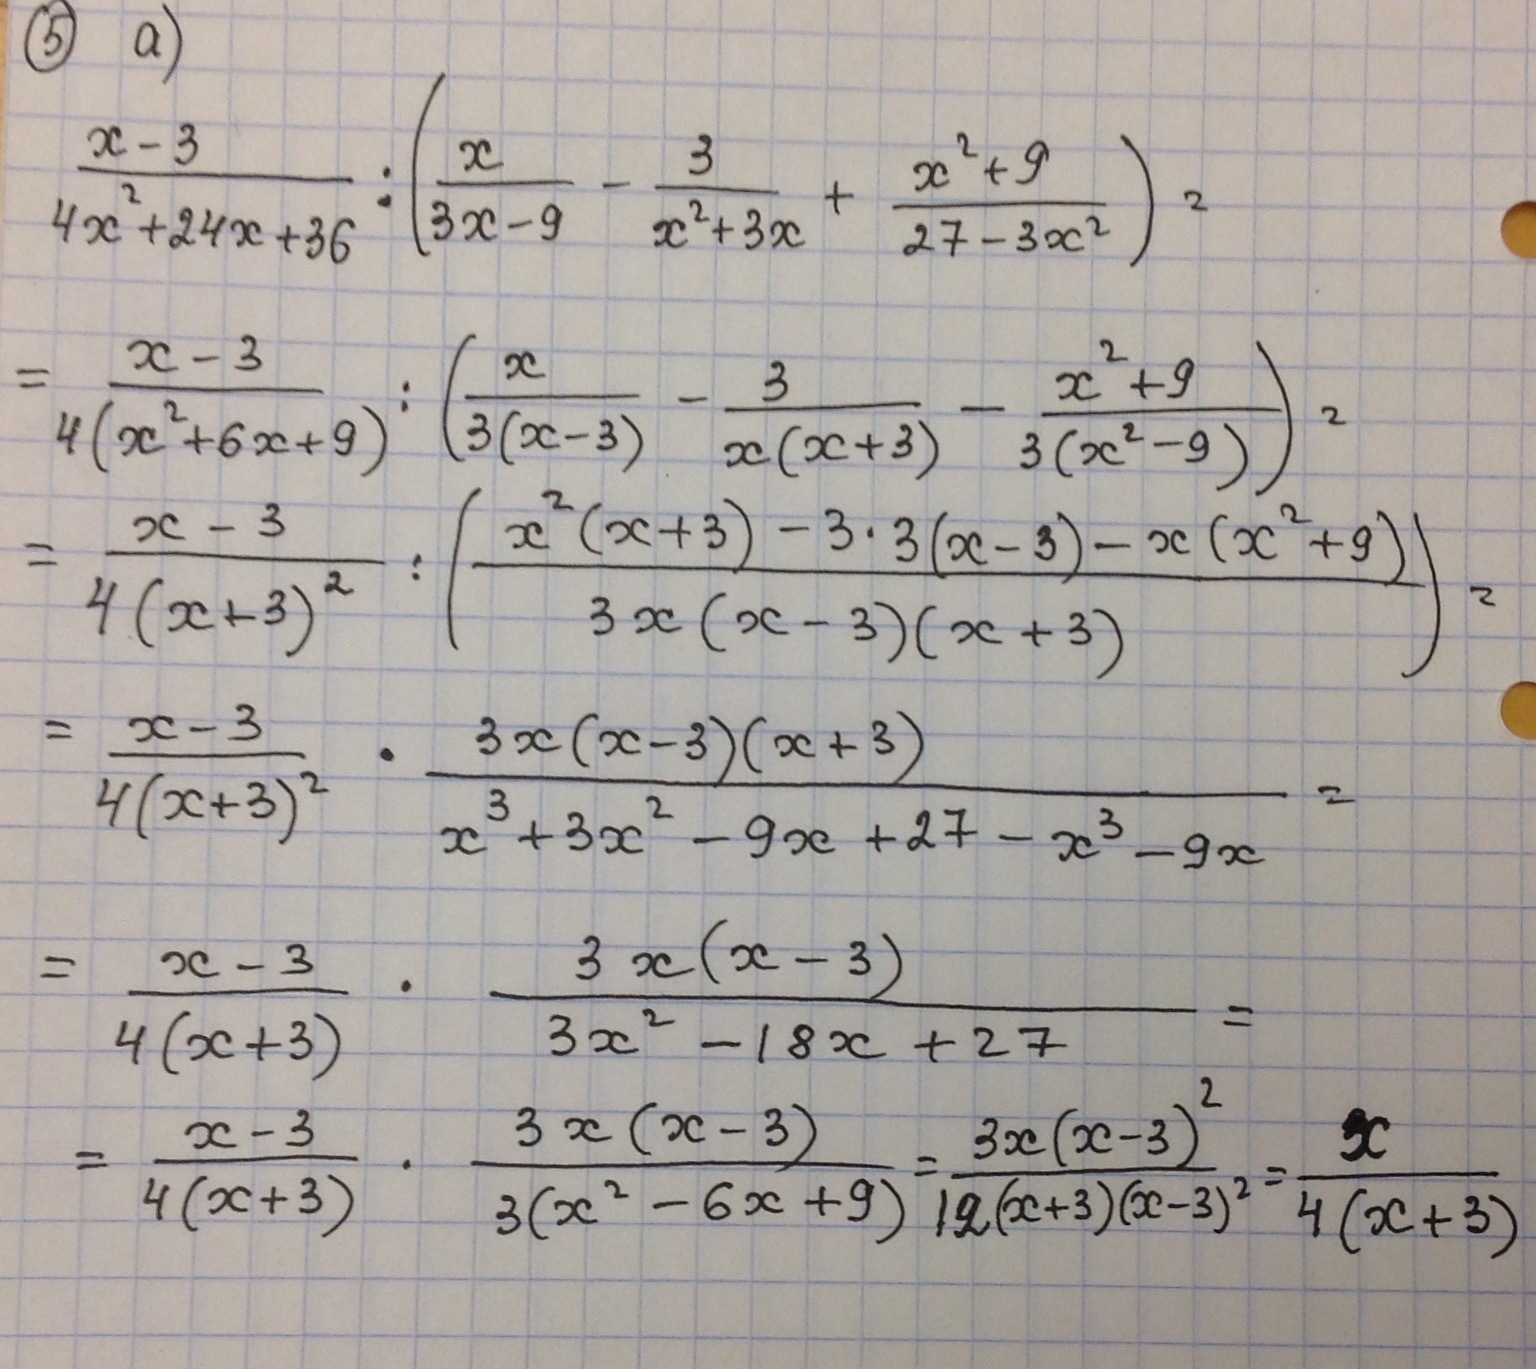 5 a)
(x-3)/(4x²+24x+36) : (x/(3x-9) - 3/(x²+3x) + (x²+9)/(27-3x²)) =
= (x-3)/(4(x²+6x+9)) : (x/(3(x-3)) - 3/(x(x+3)) - (x²+9)/(3(x²-9))) =
= (x-3)/(4(x+3)²) : ((x²(x+3) - 3·3(x-3) - x(x²+9))/(3x(x-3)(x+3))) =
= (x-3)/(4(x+3)²) · (3x(x-3)(x+3))/(x³+3x²-9x+27-x³-9x) =
= (x-3)/(4(x+3)) · (3x(x-3))/(3x²-18x+27) =
= (x-3)/(4(x+3)) · (3x(x-3))/(3(x²-6x+9)) = (3x(x-3)²)/(12(x+3)(x-3)²) = x/(4(x+3))